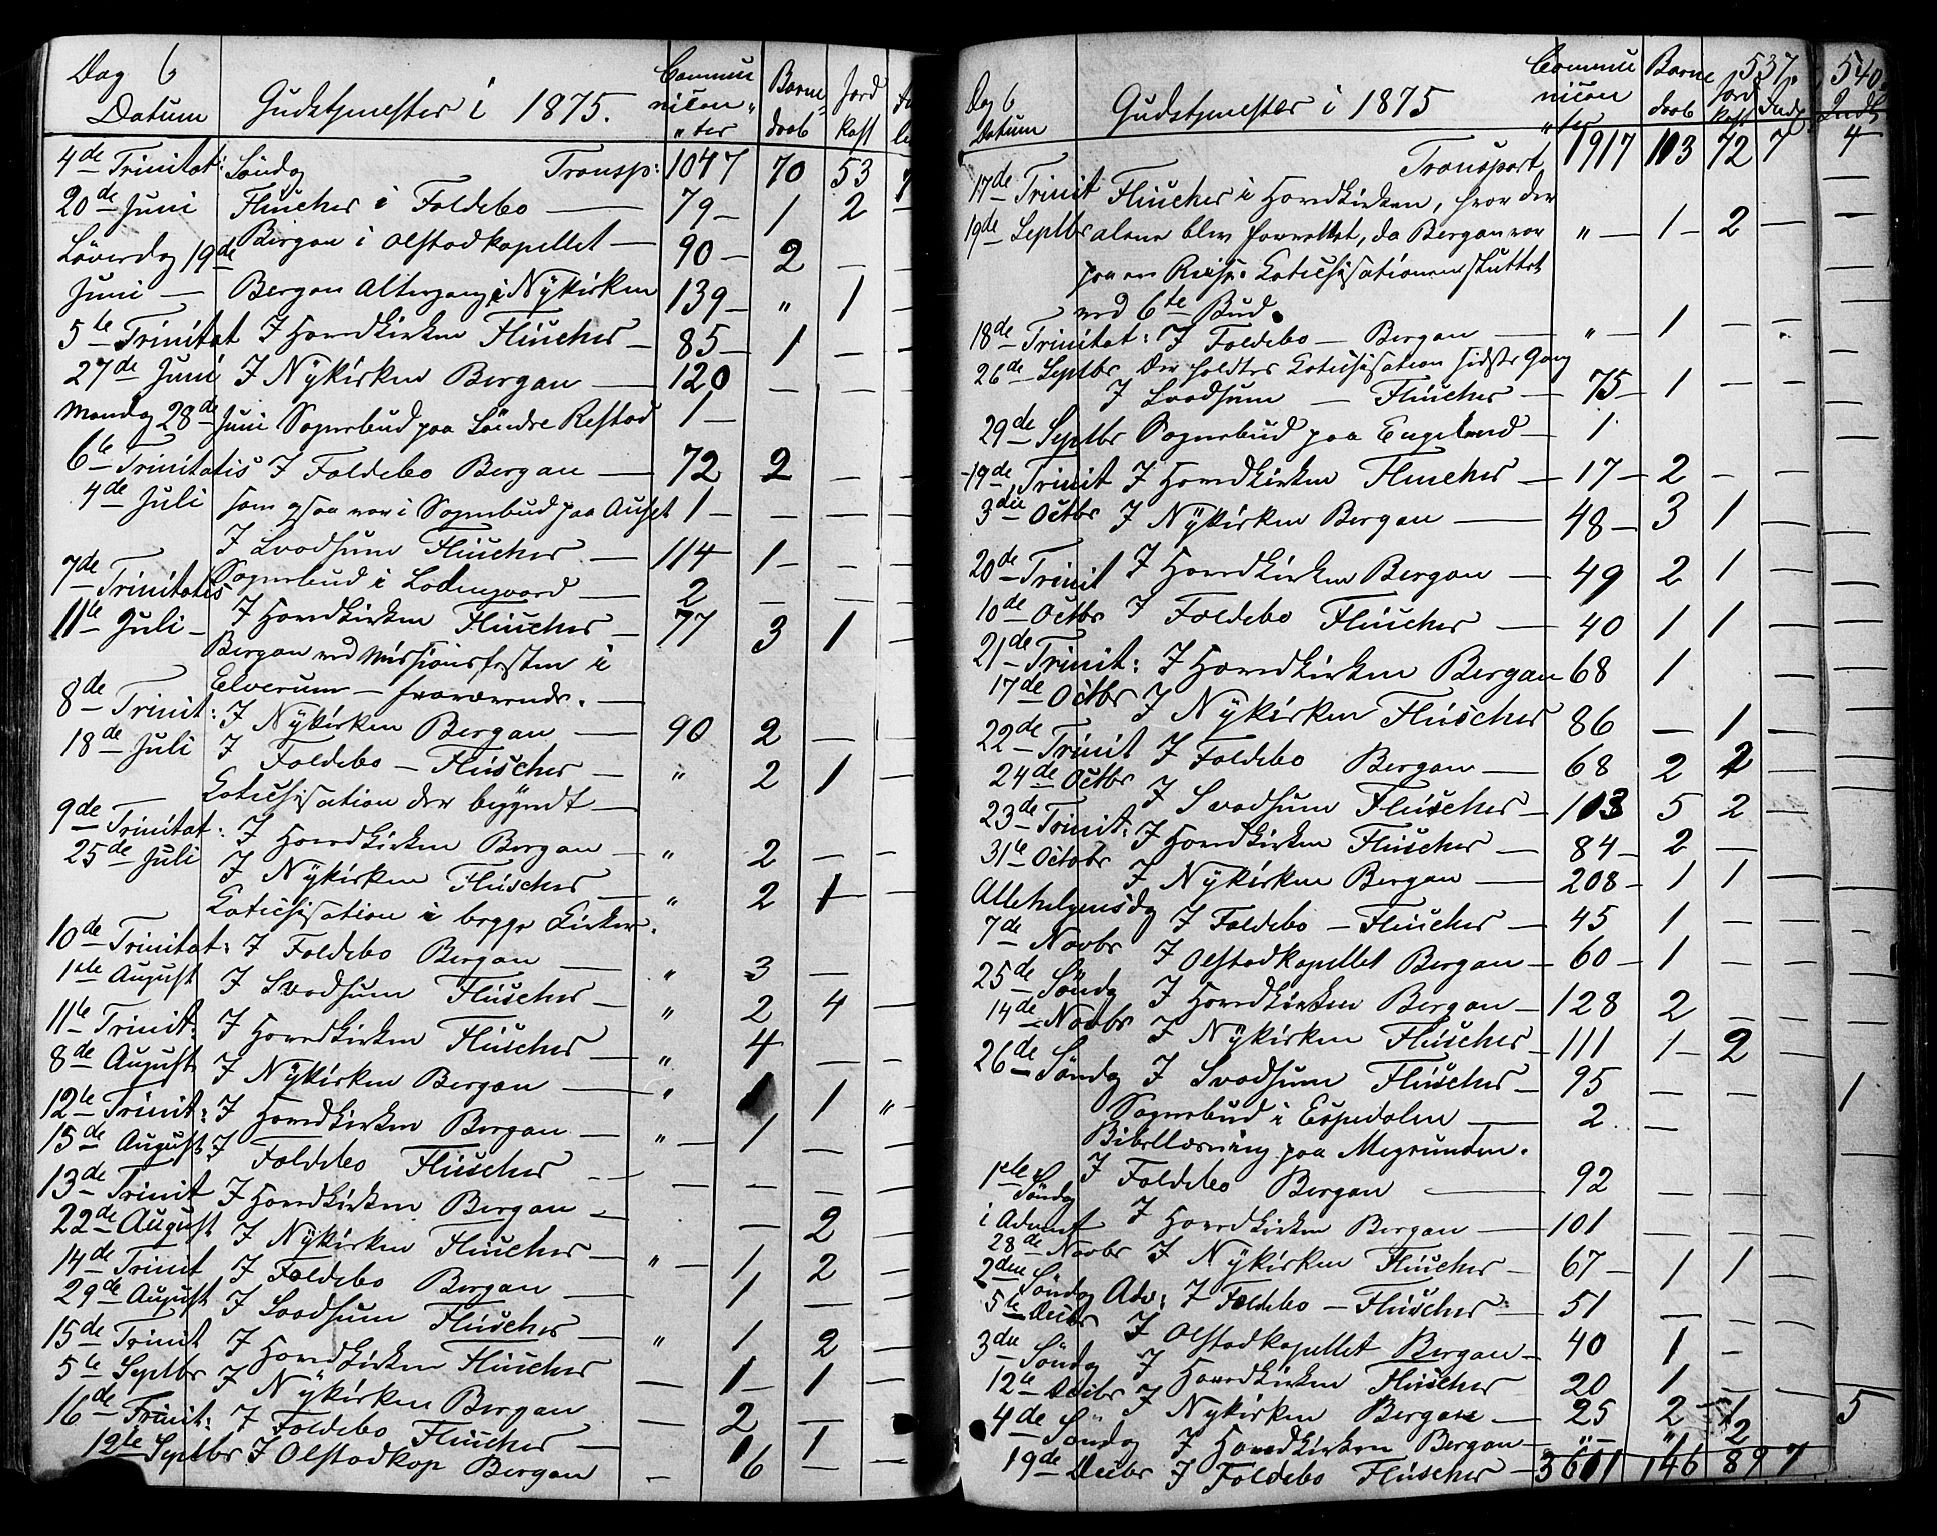 Dag 6
Datum
Gudstjenester i 1875.
Commu nican„ „ter
Barne daab
Jord kast
4de Trinitat: Søndag Transp: 1047 70 53
20de Juni Fluscher i Foldebo — 79 — 1 2 —
Bergan i Olstadkapellet — 90 — 2 — —
Løverdag 19de
Juni — Bergan Altergang i Nykirken 139 — „ 1 —
5te Trinitat I Hovedkirken Fluscher — 85 — 1 — —
27de Juni I Nykirken Bergan — 120 — — —
Mandag 28de Juni Sognebud paa Søndre Restad 1 —
6te Trinitatis I Foldebo Bergan — 72 2 — —
4de Juli som ogsaa var i Sognebud paa 1 — — — —
I Svadsum Fluscher — 114 1 — — —
7de Trinitatis Sognebud i Ladengaard — 2 — — —
11te Juli — I Hovedkirken Fluscher — 77 3 1 —
Bergan ved Missionsfesten i
Elverum — fraværende. —
8de Trinit: I Nykirken Bergan — 90 2 — —
18de Juli I Foldebo — Fluscher — „ 2 1 —
Catechisation der begyndt —
9de Trinitat: I Hovedkirken Bergan — „ 2 — —
25de Juli I Nykirken Fluscher — „ 2 1 —
Catechisation i begge Kirker.
10de Trinitat: I Foldebo Bergan — „ 3 —
1ste August I Svadsum Fluscher — „ 2 4 —
11te Trinit: I Hovedkirken Fluscher — „ 4 — —
8de August I Nykirken Bergan — „ 1 1 „
12te Trinit: I Hovedkirken Bergan — „ — 1 — —
15de August I Foldebo Fluscher — — — — —
13de Trinit I Hovedkirken Bergan — — 2 —
22de August I Nykirken Fluscher — „ — 1 2 —
14de Trinit I Foldebo Bergan — 1 — —
29de August I Svadsum Fluscher — „ 1 2 —
15de Trinit I Hovedkirken Fluscher — 1 — 1 —
5te Septbr I Nykirken Bergan — 2 —
16de Trinit: I Foldebo Fluscher — 1 1
12te Septbr I Olstadkap Bergan — 6 — —
Dag 6
Datum
Gudstjenester i 1875
Commu nican „ter
Barne daab
537.
Jord kast
Indt
540.
Indt
Transport 1917 103 72 7 4
17de Trinit Fluscher i Hovedkirken, hvor der
19de Septbr alene blev forrettet, da Bergan var „ — 1 — 2 — —
paa en Reise. Catechisationen sluttet
ved 6te Bud.
18de Trinitat: I Foldebo — Bergan — „ — 1 — — —
26de Septbr Der holdtes Catechisation sidste Gang
I Svadsum — Fluscher — 75 — 1 — — —
29de Septbr Sognebud paa Engeland — 1 —
19de Trinit I Hovedkirken Fluscher — 17 — 2 — — —
3die Octbr I Nykirken Bergan — 48 — 3 1 — —
20de Trinit I Hovedkirken Bergan — 49 2 1 — —
10de Octbr I Foldebo Fluscher — 40 1 1 — —
21de Trinit: I Hovedkirken Bergan 68 1 —
17de Octbr I Nykirken Fluscher 86 — 1 — —
22de Trinit I Foldebo Bergan — 68 2 2 — —
24de Octbr I Svadsum Fluscher — 103 5 2 — —
23de Trinit: I Hovedkirken Fluscher — 84 — 2 — — —
31te Octobr I Nykirken Bergan — 208 — 1 1 — —
Allehelgensdg I Foldebo — Fluscher — 45 1 — — —
7de Novbr I Olstadkapellet Bergan — 60 — 1 — — —
25de Søndg I Hovedkirken Bergan — 128 2 — — —
14de Novbr I Nykirken Fluscher — 111 1 — 2 — —
26de Søndag I Svadsum Fluscher — 95 — — — 1
Sognebud i Espedalen — 2 —
Bibellæsning paa Megrunden.
1ste Søndag I Foldebo Bergan — 92 — — —
i Advent I Hovedkirken Bergan — 101 — — —
28de Novbr I Nykirken Fluscher — 67 — 1 1 — —
2den Søndag Adv: I Foldebo — Fluscher — 51 — — —
5te Decbr I Olstadkapellet Bergan — 40 1 —
3die Søndag I Hovedkirken Fluscher 20 1 — — —
12te Decbr I Nykirken Bergan — 25 2 1 — 5
4de Søndag I Hovedkirken Bergan — „ — „ 2
19de Decbr I Foldebo Fluscher — 3601 146 89 7